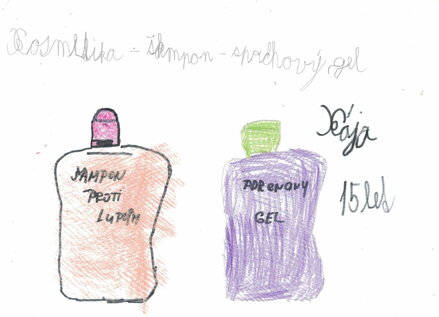 Kosmetika - šampon - sprchový gel
Kája
15 let
ŠAMPON
PROTI
LUPŮM
GEL